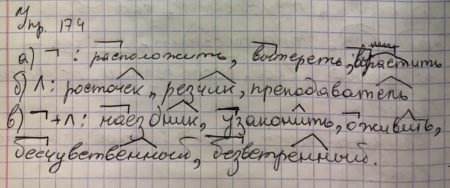 Упр. 174
а) ¬ : расположить, вытереть, врастить
б) ^ : росточек, резчик, преподаватель
в) ¬ + ^ : наездник, узаконить, оживить,
бесчувственный, безветренный.